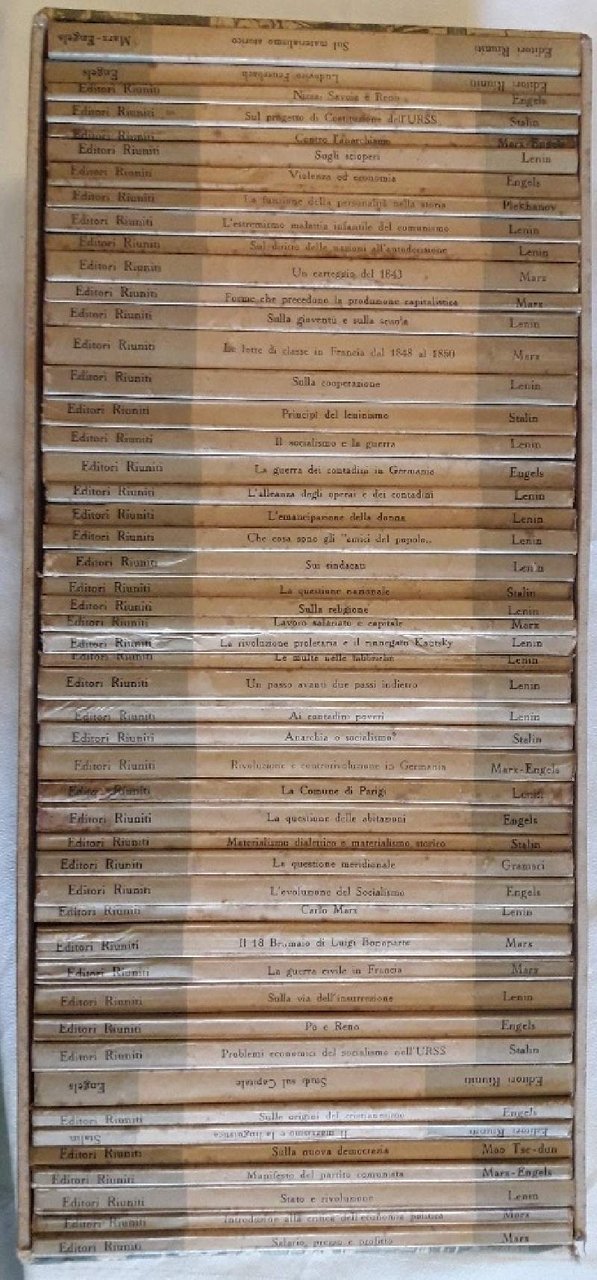 Editori Riuniti Sul materialismo storico Marx-Engels
Editori Riuniti Ludovico Feuerbach Engels
Editori Riuniti Nizza, Savoia e Reno Engels
Editori Riuniti Sul progetto di Costituzione dell'URSS Stalin
Editori Riuniti Contro l'anarchismo Marx-Engels
Editori Riuniti Sugli scioperi Lenin
Editori Riuniti Violenza ed economia Engels
Editori Riuniti La funzione della personalità nella storia Plekhanov
Editori Riuniti L'estremismo malattia infantile del comunismo Lenin
Editori Riuniti Sul diritto delle nazioni all'autodecisione Lenin
Editori Riuniti Un carteggio del 1843 Marx
Editori Riuniti Forme che precedono la produzione capitalistica Marx
Editori Riuniti Sulla gioventù e sulla scuola Lenin
Editori Riuniti Le lotte di classe in Francia dal 1848 al 1850 Marx
Editori Riuniti Sulla cooperazione Lenin
Editori Riuniti Principi del leninismo Stalin
Editori Riuniti Il socialismo e la guerra Lenin
Editori Riuniti La guerra dei contadini in Germania Engels
Editori Riuniti L'alleanza degli operai e dei contadini Lenin
Editori Riuniti L'emancipazione della donna Lenin
Editori Riuniti Che cosa sono gli "amici del popolo,, Lenin
Editori Riuniti Sui sindacati Lenin
Editori Riuniti La questione nazionale Stalin
Editori Riuniti Sulla religione Lenin
Editori Riuniti Lavoro salariato e capitale Marx
Editori Riuniti La rivoluzione proletaria e il rinnegato Kautsky Lenin
Editori Riuniti Le multe nelle fabbriche Lenin
Editori Riuniti Un passo avanti due passi indietro Lenin
Editori Riuniti Ai contadini poveri Lenin
Editori Riuniti Anarchia o socialismo? Stalin
Editori Riuniti Rivoluzione e controrivoluzione in Germania Marx-Engels
Editori Riuniti La Comune di Parigi Lenin
Editori Riuniti La questione delle abitazioni Engels
Editori Riuniti Materialismo dialettico e materialismo storico Stalin
Editori Riuniti La questione meridionale Gramsci
Editori Riuniti L'evoluzione del Socialismo Engels
Editori Riuniti Carlo Marx Lenin
Editori Riuniti Il 18 Brumaio di Luigi Bonaparte Marx
Editori Riuniti La guerra civile in Francia Marx
Editori Riuniti Sulla via dell'insurrezione Lenin
Editori Riuniti Po e Reno Engels
Editori Riuniti Problemi economici del socialismo nell'URSS Stalin
Editori Riuniti Studi sul Capitale Engels
Editori Riuniti Sulle origini del cristianesimo Engels
Editori Riuniti Il marxismo e la linguistica Stalin
Editori Riuniti Sulla nuova democrazia Mao Tse-dun
Editori Riuniti Manifesto del partito comunista Marx-Engels
Editori Riuniti Stato e rivoluzione Lenin
Editori Riuniti Introduzione alla critica dell'economia politica Marx
Editori Riuniti Salario, prezzo e profitto Marx